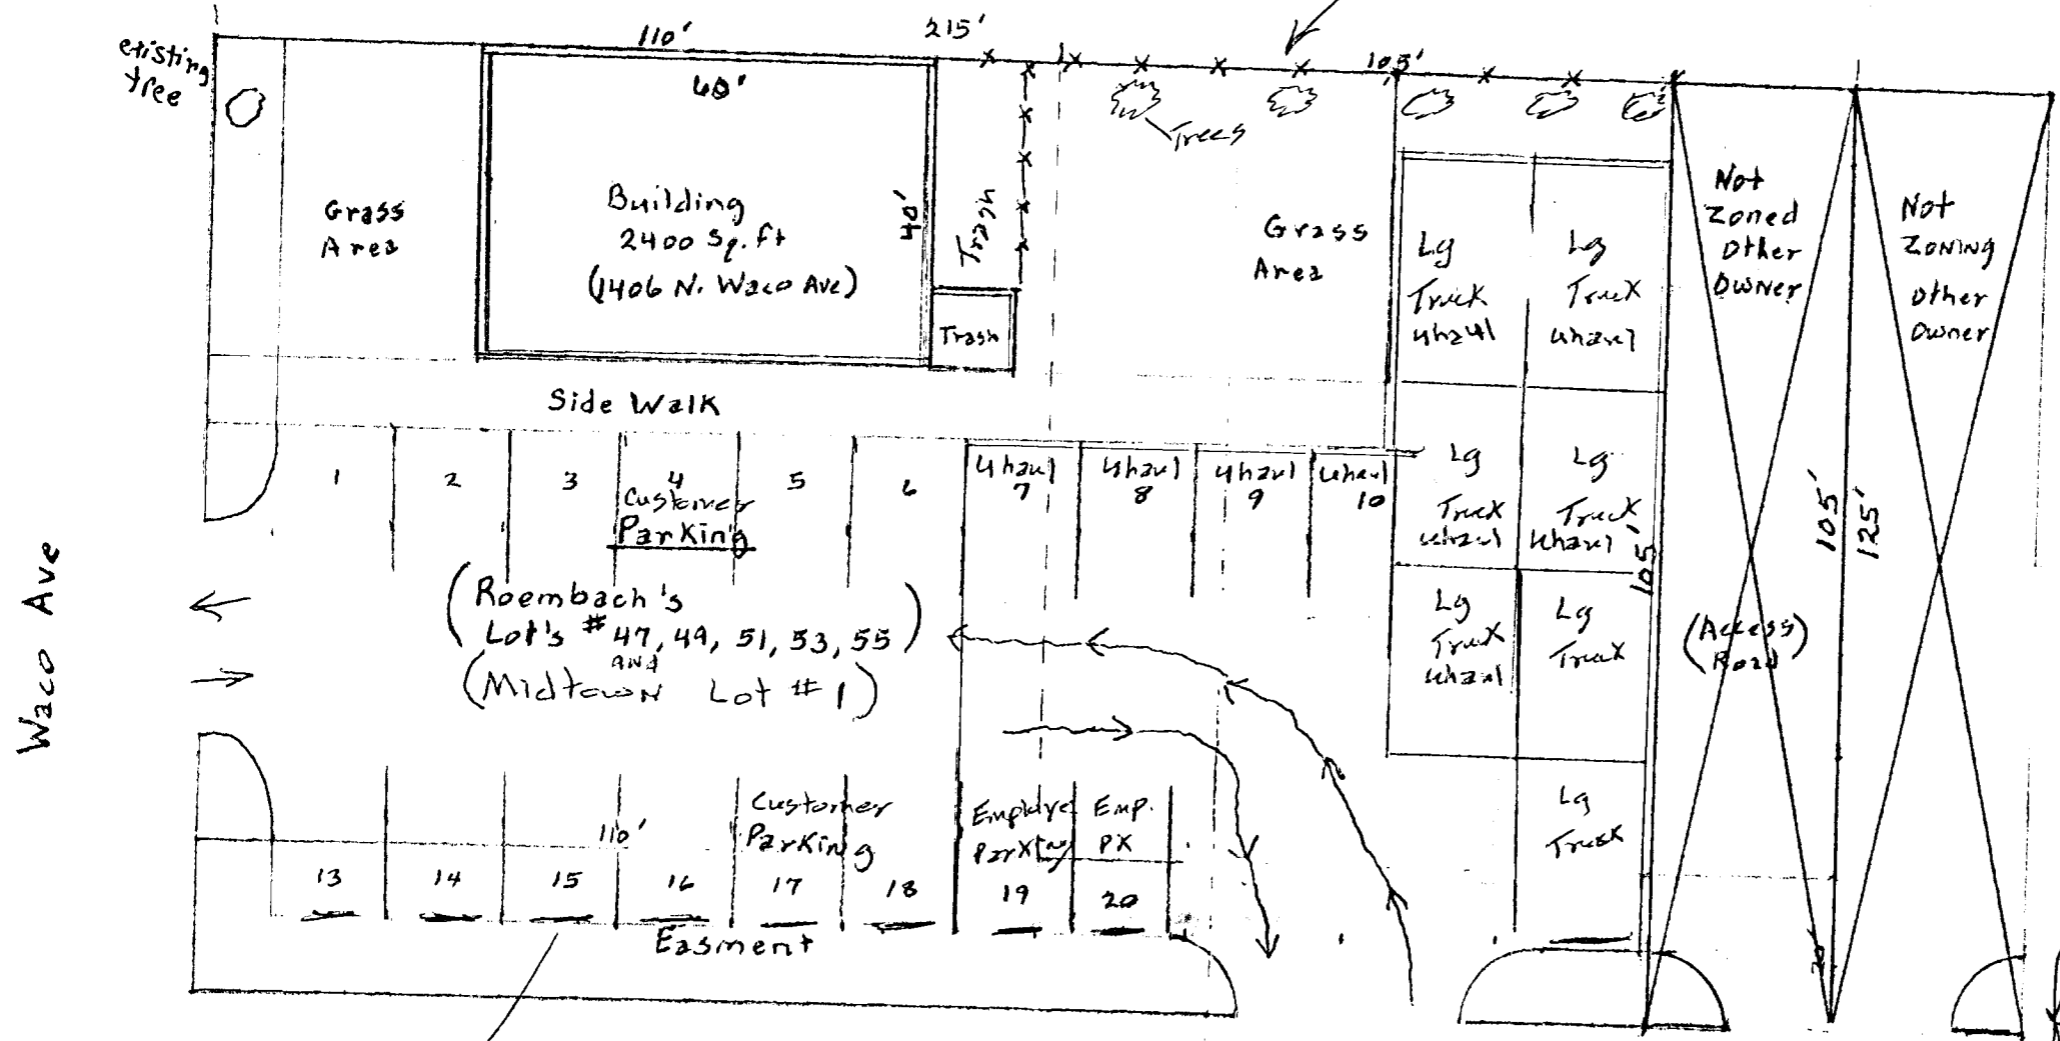 110'
215'
105'
existing
tree
60'
Trees
Grass
Area
Building
2400 Sq. ft
(1406 N. Waco Ave)
40'
Trash
Trash
Grass
Area
Lg
Truck
uhaul
Lg
Truck
uhaul
Not
Zoned
Other
Owner
Not
Zoning
other
Owner
Side Walk
1
2
3
4
5
6
Customer
Parking
uhaul
7
uhaul
8
uhaul
9
uhaul
10
Lg
Truck
uhaul
Lg
Truck
uhaul
105'
105'
125'
Waco Ave
(Roembach's
Lot's # 47, 49, 51, 53, 55)
and
(Midtown Lot # 1)
Lg
Truck
uhaul
Lg
Truck
(Access
Road)
110'
Customer
Parking
Employe
Parking
Emp.
PK
Lg
Truck
13
14
15
16
17
18
19
20
Easment
20'